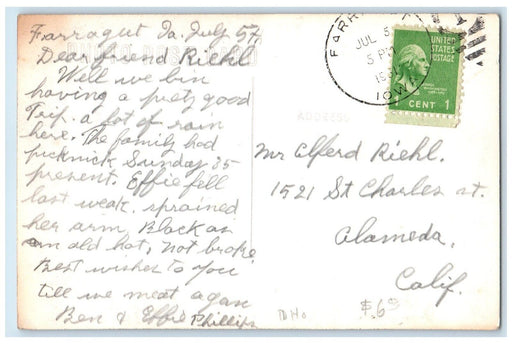 Farragut Ia. July 5th
Dear friend Riehl
Well we bin
having a prety good
Trip. a lot of rain
here. The family had
picknick Sunday 35
present. Effie fell
last weak. sprained
her arm, Black as
an old hat, not broke
Best wishes to you
till we meat agan
Ben & Effie Phillips
FARRAGUT
JUL 5
5 PM
IOWA
UNITED
STATES
POSTAGE
CENT 1
ADDRESS
Mr Alferd Riehl.
1521 St Charles st.
Alameda,
Calif.
$6